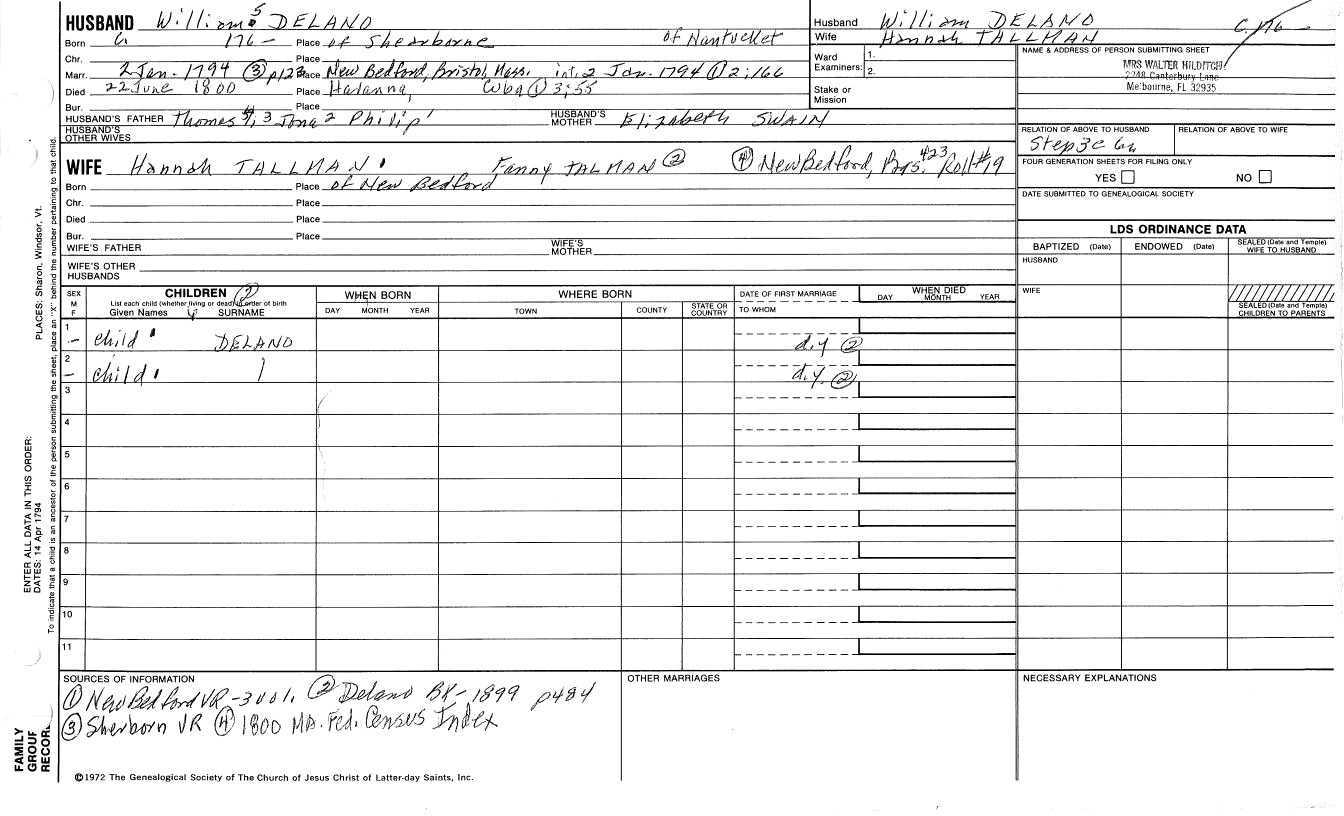 HUSBAND William 5 DELANO
Born C 176- Place of Shearborne of Nantucket
Chr. Place
Marr. 2 Jan. 1794 ③ p123 Place New Bedford, Bristol, Mass. int. 2 Jan. 1794 ① 2:166
Died 22 June 1800 Place Havanna, Cuba ① 3:55
Bur. Place
HUSBAND'S FATHER Thomas 4, 3 Jona 2 Philip 1 HUSBAND'S MOTHER Elizabeth SWAIN
HUSBAND'S OTHER WIVES
WIFE Hannah TALLMAN Fanny TALMAN ② ④ New Bedford, Pg 5. #23 Roll #19
Born Place of New Bedford
Chr. Place
Died Place
Bur. Place
WIFE'S FATHER WIFE'S MOTHER
WIFE'S OTHER HUSBANDS
Husband William DELANO C. 176-
Wife Hannah TALLMAN
Ward Examiners: 1.
2.
Stake or Mission
NAME & ADDRESS OF PERSON SUBMITTING SHEET
MRS WALTER HILDITCH
2248 Canterbury Lane
Melbourne, FL 32935
RELATION OF ABOVE TO HUSBAND RELATION OF ABOVE TO WIFE
Step 3c 6
FOUR GENERATION SHEETS FOR FILING ONLY
YES NO
DATE SUBMITTED TO GENEALOGICAL SOCIETY
LDS ORDINANCE DATA
BAPTIZED (Date) ENDOWED (Date) SEALED (Date and Temple) WIFE TO HUSBAND
HUSBAND
WIFE
SEALED (Date and Temple) CHILDREN TO PARENTS
SEX M F CHILDREN ② WHEN BORN WHERE BORN DATE OF FIRST MARRIAGE WHEN DIED
List each child (whether living or dead) in order of birth
Given Names SURNAME DAY MONTH YEAR TOWN COUNTY STATE OR COUNTRY TO WHOM DAY MONTH YEAR
1 - child DELANO d.y ②
2 - child d.y. ②
3
4
5
6
7
8
9
10
11
SOURCES OF INFORMATION
① New Bedford VR - 3 vol. ② Delano BK - 1899 p484
③ Sherborn VR ④ 1800 MA. Fed. Census Index
OTHER MARRIAGES
NECESSARY EXPLANATIONS
©1972 The Genealogical Society of The Church of Jesus Christ of Latter-day Saints, Inc.
FAMILY GROUP RECORD
ENTER ALL DATA IN THIS ORDER:
DATES: 14 Apr 1794 PLACES: Sharon, Windsor, Vt.
To indicate that a child is an ancestor of the person submitting the sheet, place an "X" behind the number pertaining to that child.